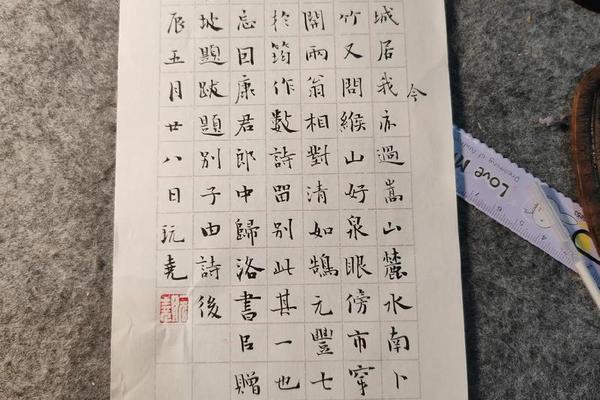 城居我亦過嵩山麓水南卜
今
竹又問緱山好泉眼傍市穿
開兩翁相對清如鵠元豐七
於筠作數詩留別此其一也
忘回康君郎中歸洛書臣贈
坡題跋題別子由詩後
辰五月廿八日玩堯
Love M